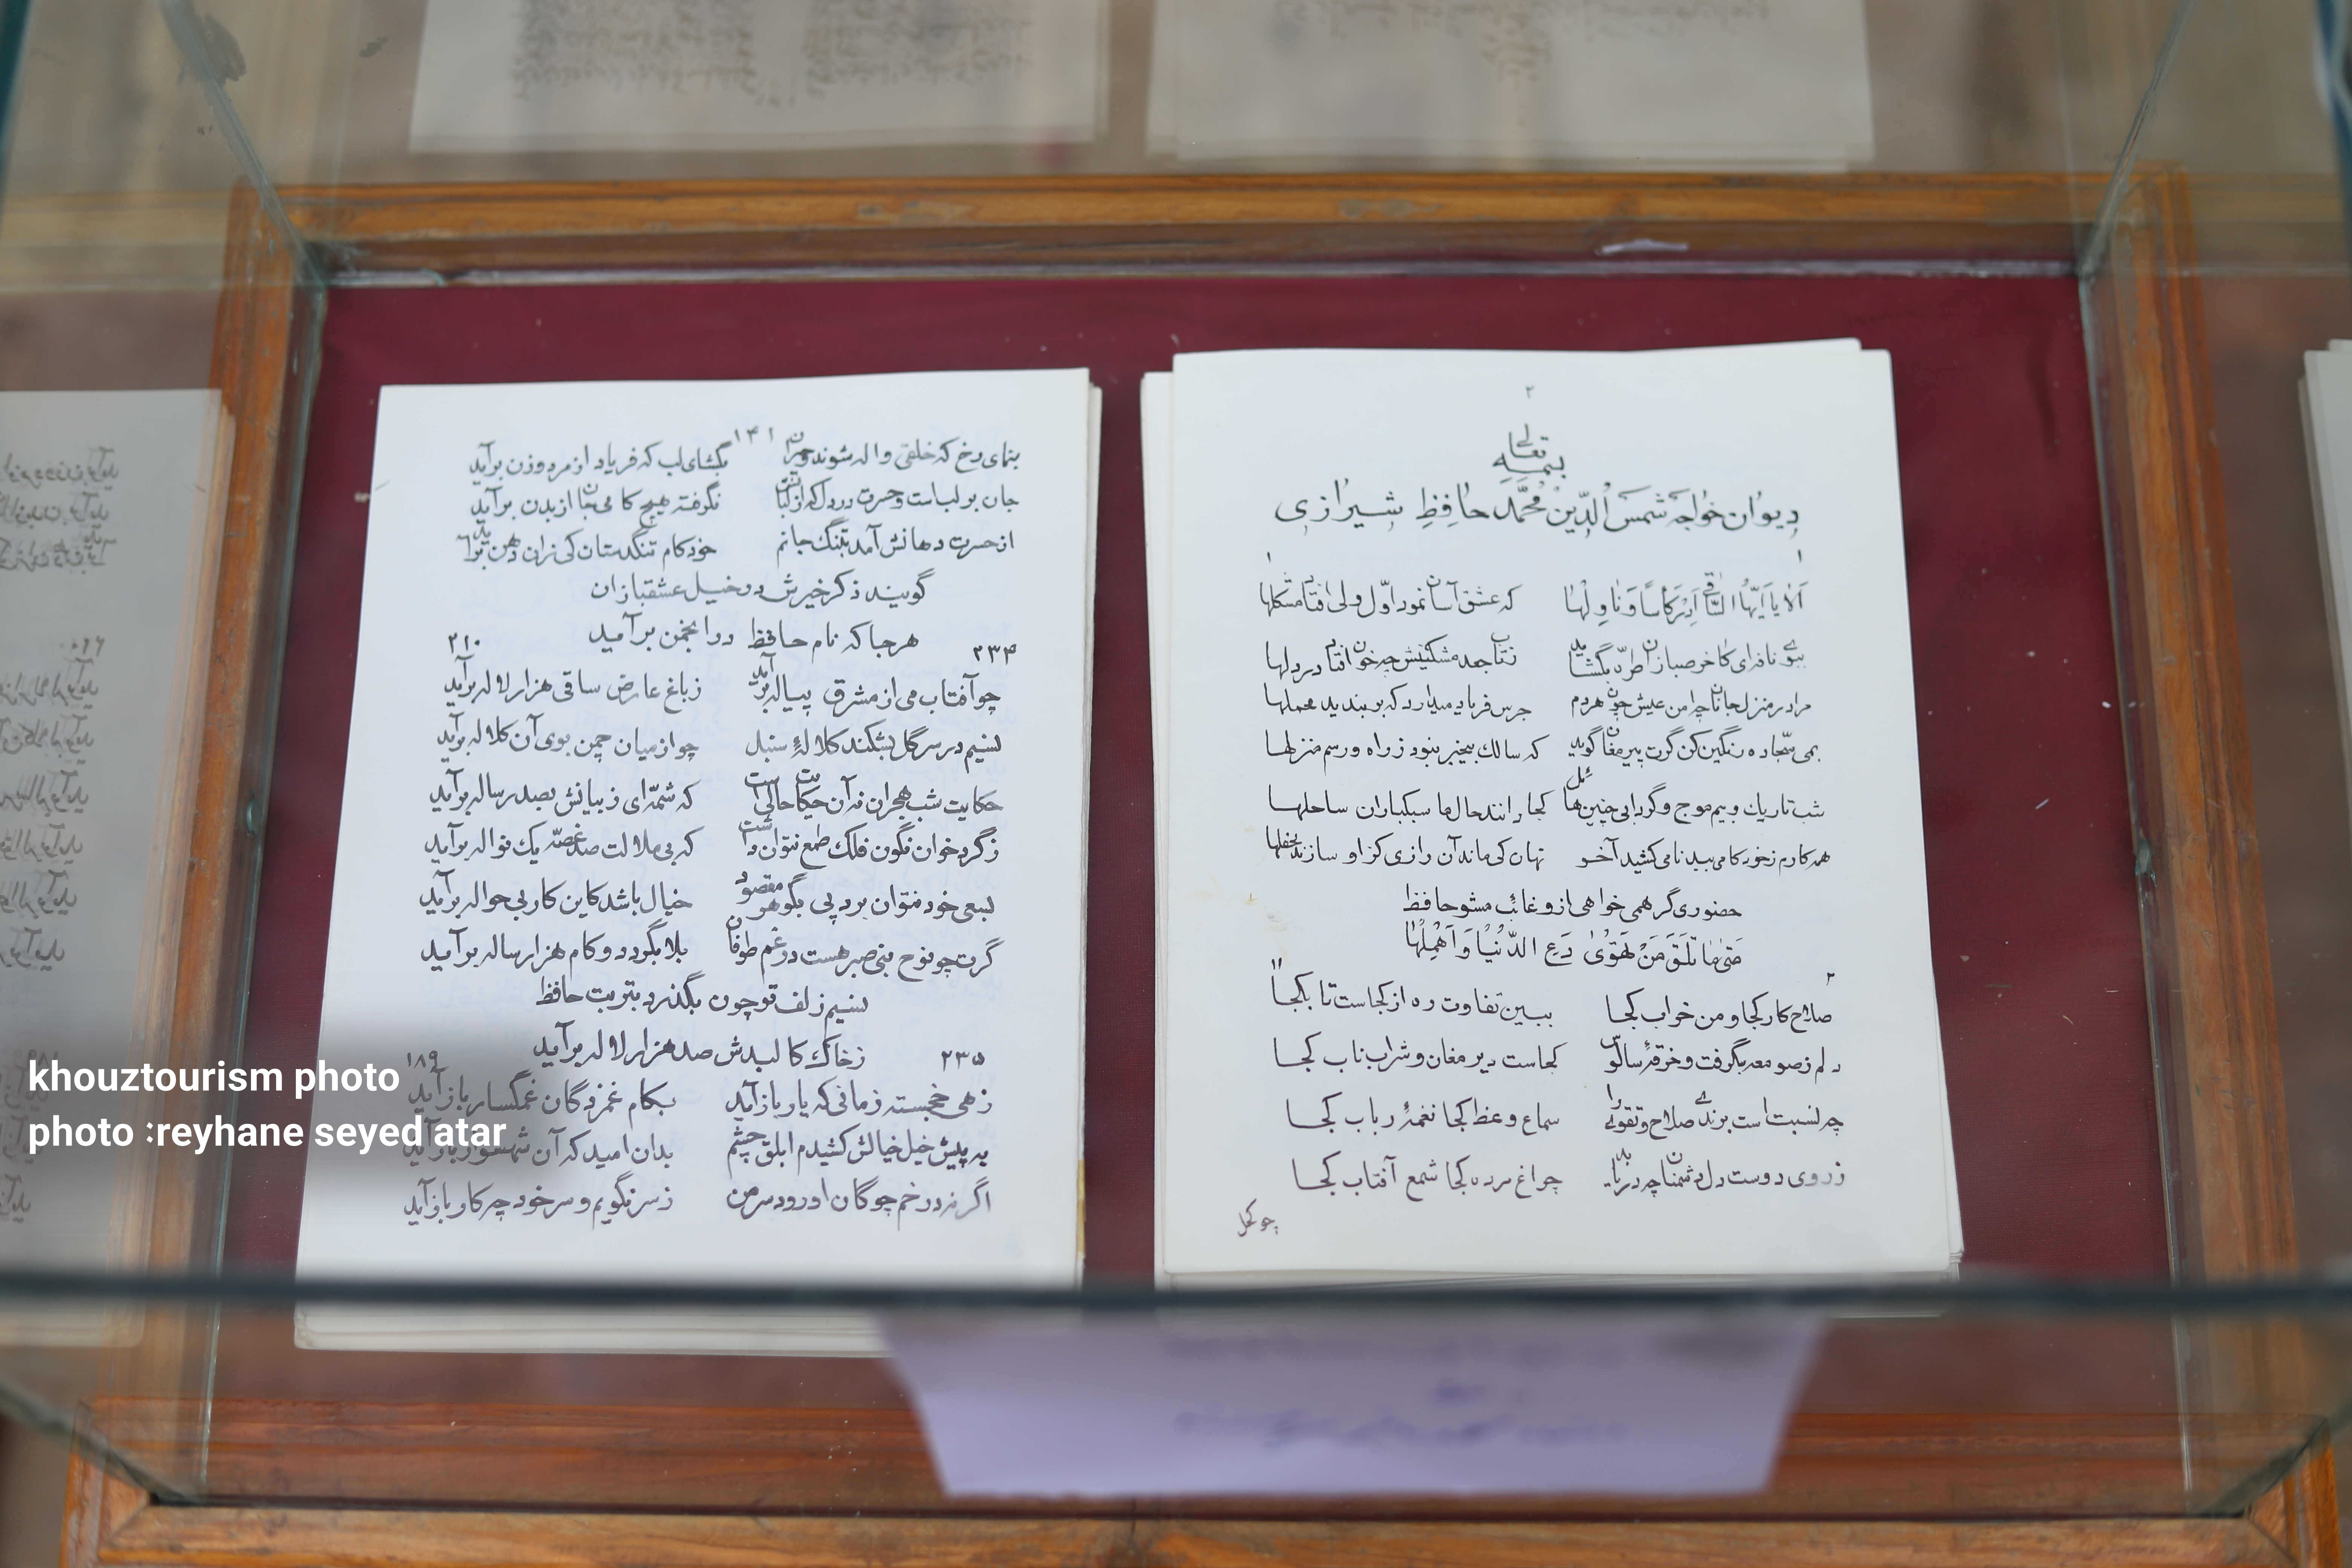 ۲
بسمه تعالی
دیوان خواجه شمس الدین محمد حافظ شیرازی
۱ ۱
اَلا یا اَیُّهَا السّاقی اَدِرْ کَأساً وَ ناوِلْها که عشق آسان نمود اوّل ولی افتاد مشکلها
ببوی نافه‌ای کاخر صبا زان طرّه بگشاید ز تاب جعد مشکینش چه خون افتاد در دلها
مرا در منزل جانان چه امن عیش چون هر دم جرس فریاد میدارد که بربندید محملها
بمی سجّاده رنگین کن گرت پیر مغان گوید که سالک بیخبر نبود ز راه و رسم منزلها
شب تاریک و بیم موج و گردابی چنین هائل کجا دانند حال ما سبکباران ساحلها
همه کارم ز خود کامی ببدنامی کشید آخر نهان کی ماند آن رازی کز او سازند محفلها
حضوری گر همی خواهی از و غائب مشو حافظ
مَتی ما تَلْقَ مَنْ تَهْوی دَعِ الدُّنیا وَ اَهْمِلْها
۲ ۱۱
صلاح کار کجا و من خراب کجا ببین تفاوت ره از کجاست تا بکجا
دلم ز صومعه بگرفت و خرقهٔ سالوس کجاست دیر مغان و شراب ناب کجا
چه نسبت است برندی صلاح و تقوی را سماع وعظ کجا نغمهٔ رباب کجا
ز روی دوست دل دشمنان چه دریابد چراغ مرده کجا شمع آفتاب کجا
چو کحل
۱۴۱
بنمای رخ که خلقی واله شوند و حیران بگشای لب که فریاد از مرد و زن برآید
جان بر لب است و حسرت در دل که از لبانش نگرفته هیچ کامی جان از بدن برآید
از حسرت دهانش آمد بتنگ جانم خود کام تنگدستان کی زان دهن برآید
گویند ذکر خیرش در خیل عشقبازان
هر جا که نام حافظ در انجمن برآید
۲۳۴ ۲۱۰
چو آفتاب می از مشرق پیاله برآید ز باغ عارض ساقی هزار لاله برآید
نسیم در سر گل بشکند کلالهٔ سنبل چو از میان چمن بوی آن کلاله برآید
حکایت شب هجران نه آن حکایت حالی است که شمّه‌ای ز بیانش بصد رساله برآید
ز گرد خوان نگون فلک طمع نتوان داشت که بی ملالت صد غصّه یک نواله برآید
بسعی خود نتوان برد پی بگوهر مقصود خیال باشد کاین کار بی حواله برآید
گرت چو نوح نبی صبر هست در غم طوفان بلا بگردد و کام هزار ساله برآید
نسیم زلف تو چون بگذرد بتربت حافظ
ز خاک کالبدش صد هزار لاله برآید
۲۳۵ ۱۸۹
زهی خجسته زمانی که یار بازآید بکام غمزدگان غمگسار بازآید
به پیش خیل خیالش کشیدم ابلق چشم بدان امید که آن شهسوار بازآید
اگر نه در خم چوگان او رود سر من ز سر نگویم و سر خود چه کار بازآید
khouztourism photo
photo :reyhane seyed atar